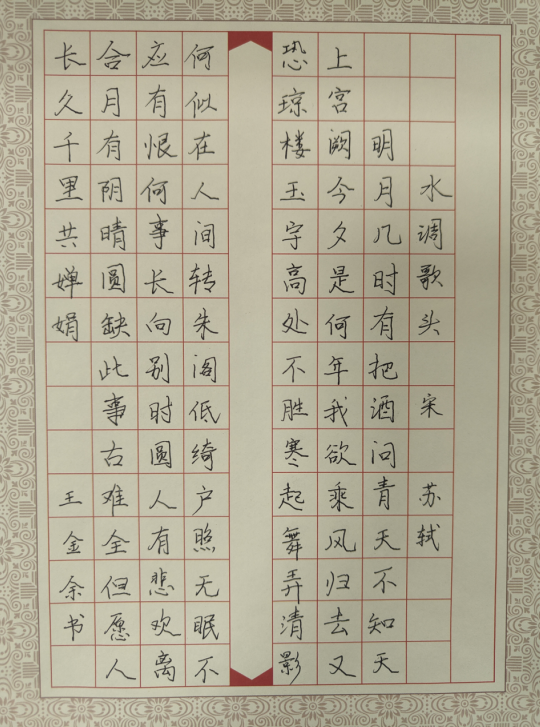 水调歌头 宋 苏轼
明月几时有把酒问青天不知天
上宫阙今夕是何年我欲乘风归去又
恐琼楼玉宇高处不胜寒起舞弄清影
何似在人间转朱阁低绮户照无眠不
应有恨何事长向别时圆人有悲欢离
合月有阴晴圆缺此事古难全但愿人
长久千里共婵娟 王金余书